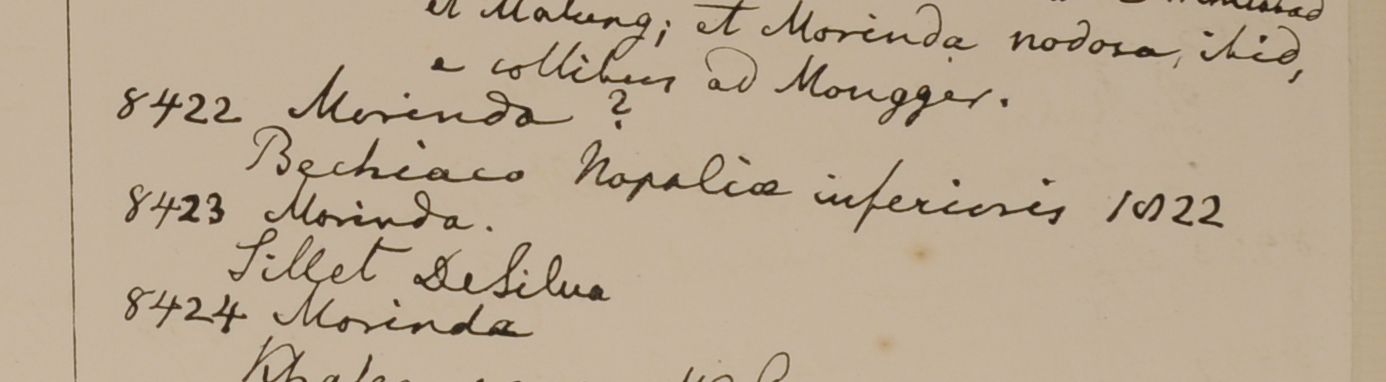 et Matung; et Morinda nodosa, ibid,
e collibus ad Mougger.
8422 Morinda ?
Bechiaco Napaliæ inferioris 1822
8423 Morinda.
Sillet DeSilva
8424 Morinda